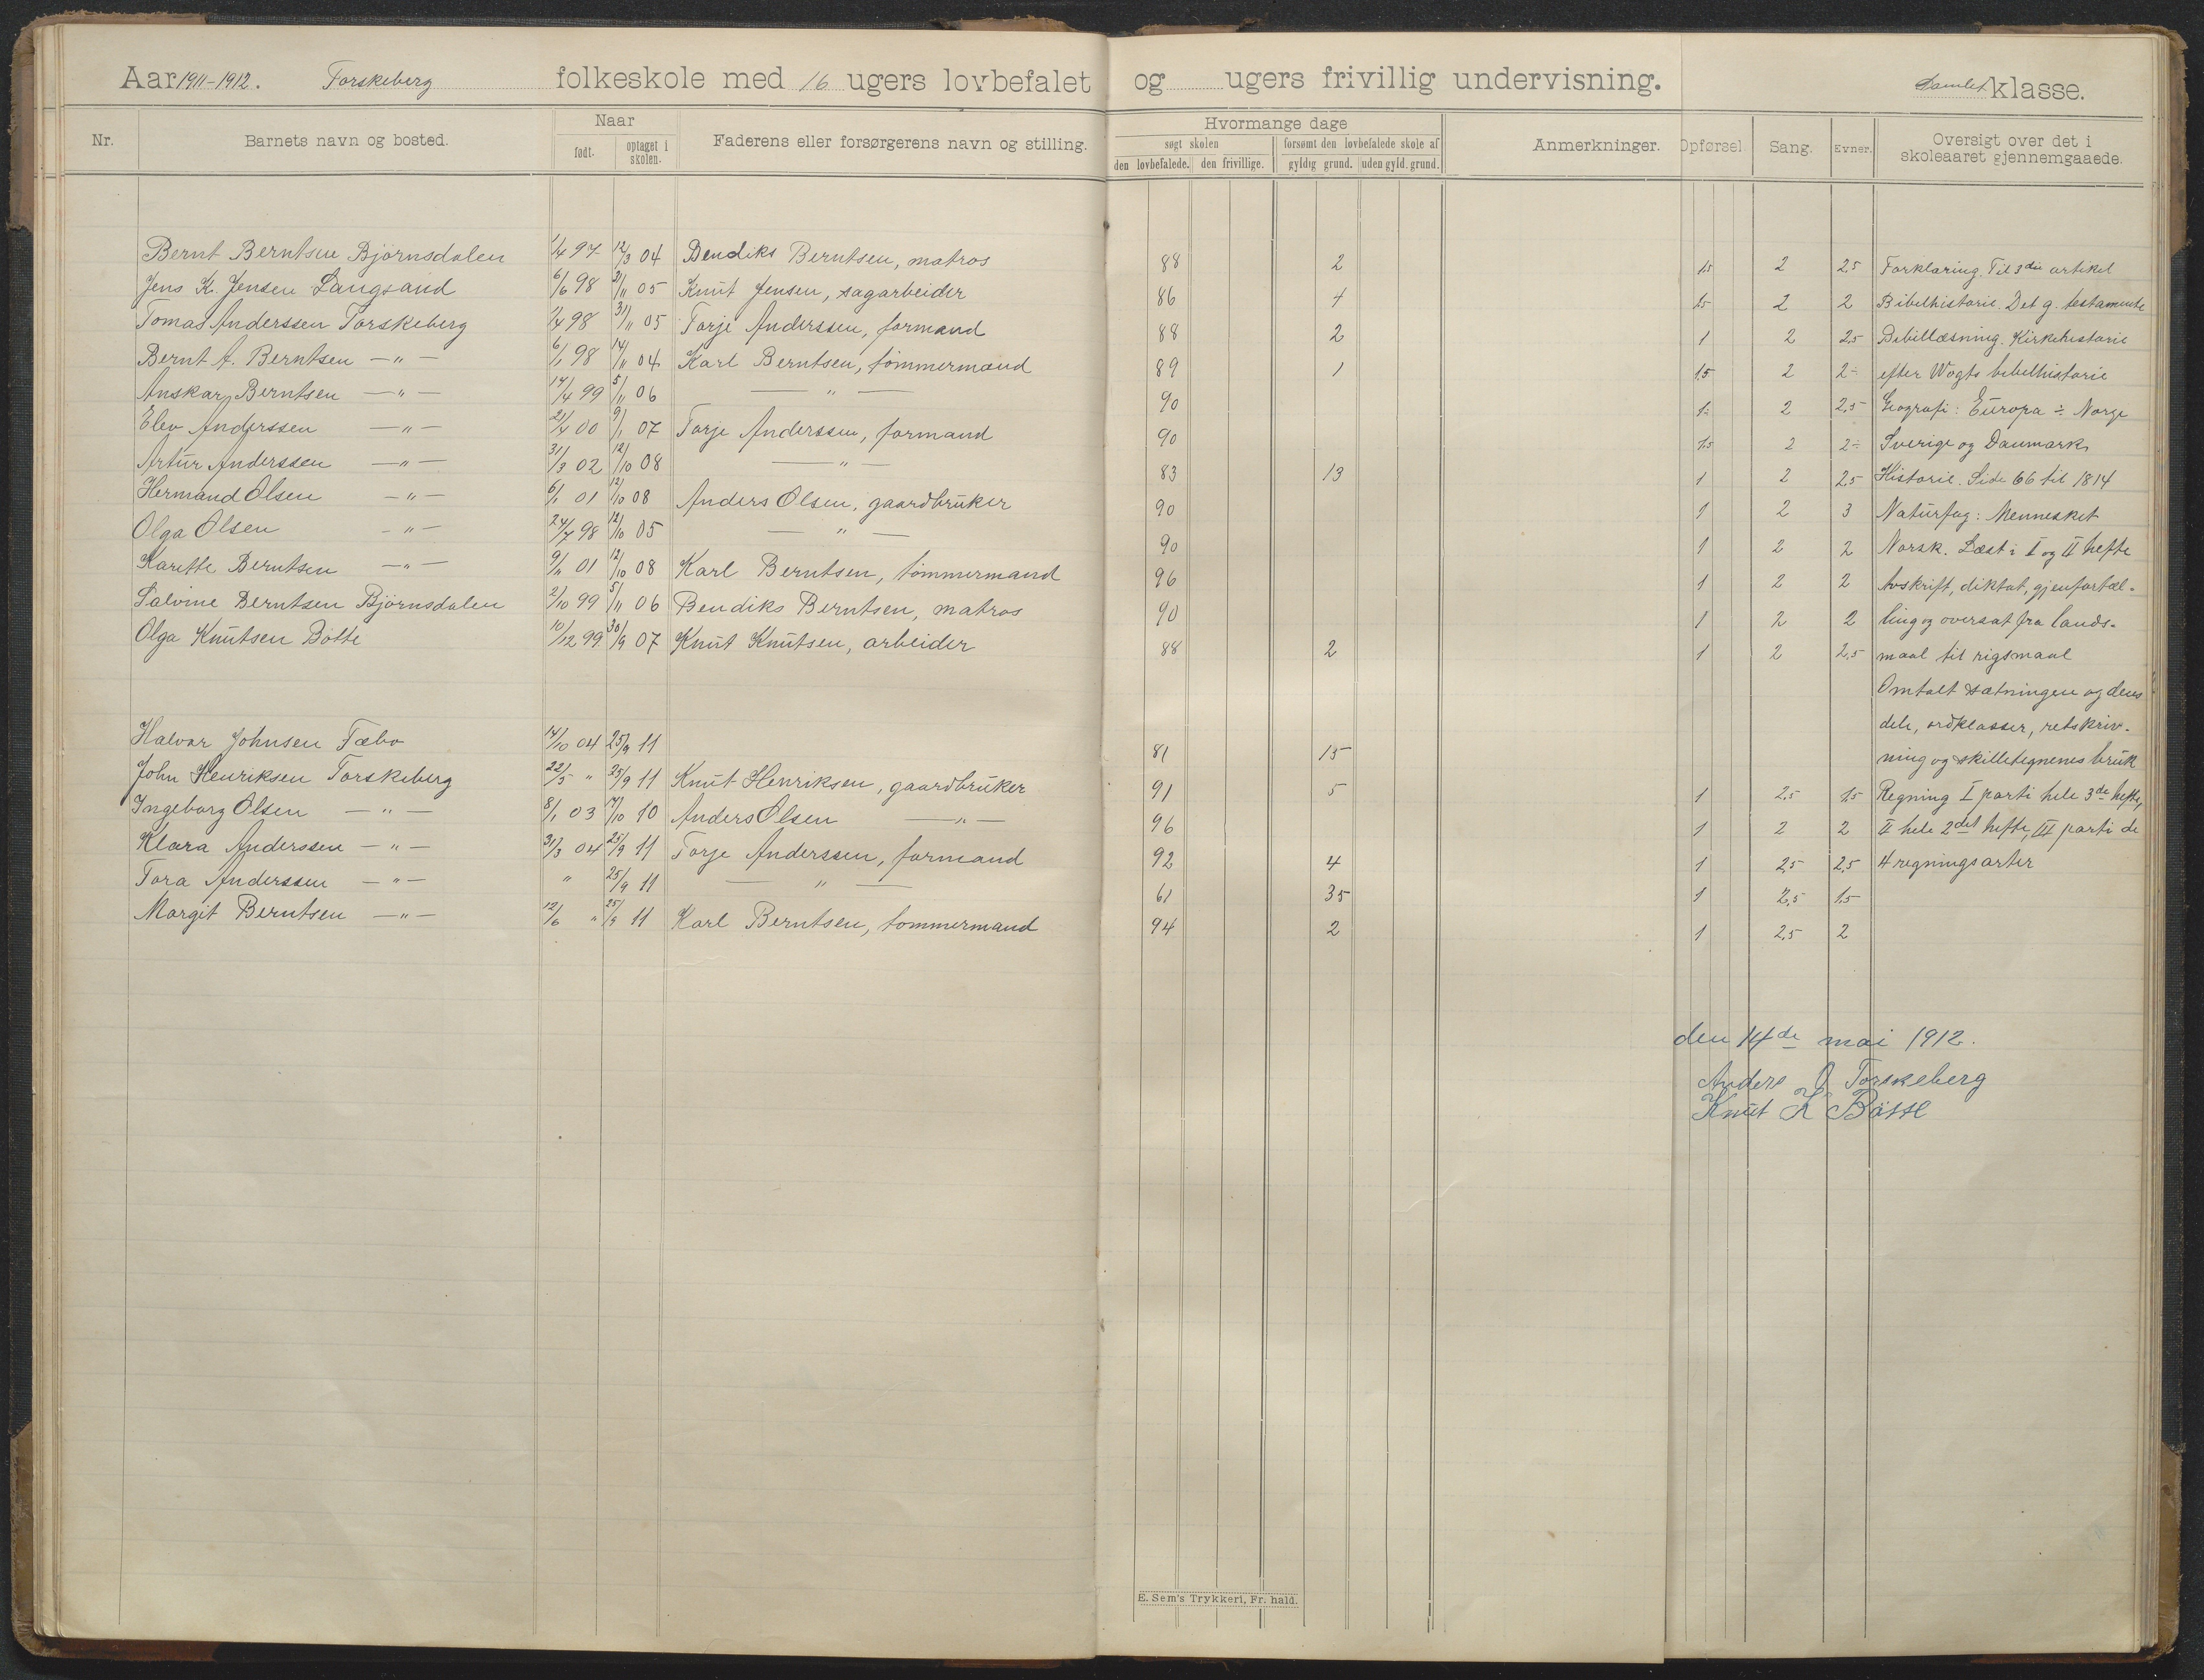 Aar 1911-1912. Torskeberg folkeskole med 16 ugers lovbefalet og ugers frivillig undervisning. Samlet klasse.
Nr. Barnets navn og bosted. Naar født. optaget i skolen. Faderens eller forsørgerens navn og stilling. Hvormange dage søgt skolen den lovbefalede. den frivillige. forsømt den lovbefalede skole af gyldig grund. uden gyld. grund. Anmerkninger. Opførsel. Sang. Evner. Oversigt over det i skoleaaret gjennemgaaede.
Bernt Berntsen Bjørnsdalen 1/4 97 12/3 04 Bendiks Berntsen, matros 88 2 1,5 2 2,5 Forklaring. Til 3die artikel
Jens K. Jensen Langsand 6/6 98 21/11 05 Knut Jensen, sagarbeider 86 4 1,5 2 2 Bibelhistorie. Det g. testamente
Tomas Anderssen Torskeberg 2/4 98 31/11 05 Torje Anderssen, formand 88 2 1 2 2,5 Bibellæsning. Kirkehistorie
Bernt A. Berntsen —"— 6/1 98 14/11 04 Karl Berntsen, tømmermand 89 1 1,5 2 2÷ efter Vogts bibelhistorie
Anskar Berntsen —"— 14/4 99 5/11 06 —"— 90 1÷ 2 2,5 Geografi: Europa ÷ Norge
Elev Anderssen —"— 21/4 00 9/1 07 Torje Anderssen, formand 90 1,5 2 2÷ Sverige og Danmark
Artur Anderssen —"— 31/3 02 12/10 08 —"— 83 13 1 2 2,5 Historie. Side 66 til 1814
Hermand Olsen —"— 6/1 01 12/10 08 Anders Olsen, gaardbruker 90 1 2 3 Naturfag: Mennesket
Olga Olsen —"— 24/7 98 12/10 05 —"— 90 1 2 2 Norsk. Læst i I og II hefte
Karette Berntsen —"— 9/11 01 12/10 08 Karl Berntsen, tømmermand 96 1 2 2 Avskrift, diktat, gjenfortæl-
Salvine Berntsen Bjørnsdalen 2/10 99 5/11 06 Bendiks Berntsen, matros 90 1 2 2 ling og oversat fra lands-
Olga Knutsen Bøtte 10/12 99 30/9 07 Knut Knutsen, arbeider 88 2 1 2 2,5 maal til rigsmaal
Omtalt sætningen og dens
dele, ordklasser, retskriv-
Halvor Johnsen Fæbo 14/10 04 25/9 11 81 15 ning og skilletegnenes bruk
John Henriksen Torskeberg 22/5 " 25/9 11 Knut Henriksen, gaardbruker 91 5 1 2,5 1,5 Regning I parti hele 3de hefte,
Ingeborg Olsen —"— 8/1 03 17/10 10 Anders Olsen —"— 96 1 2 2 II hele 2det hefte, III parti de
Klara Anderssen —"— 31/3 04 25/9 11 Torje Anderssen, formand 92 4 1 2,5 2,5 4 regningsarter
Tora Anderssen —"— " 25/9 11 —"— 61 35 1 2,5 1,5
Margit Berntsen —"— 12/6 " 25/9 11 Karl Berntsen, tømmermand 94 2 1 2,5 2
den 14de mai 1912.
Anders O Torskeberg
Knut K Bøtte
E. Sem's Trykkeri, Fr. hald.